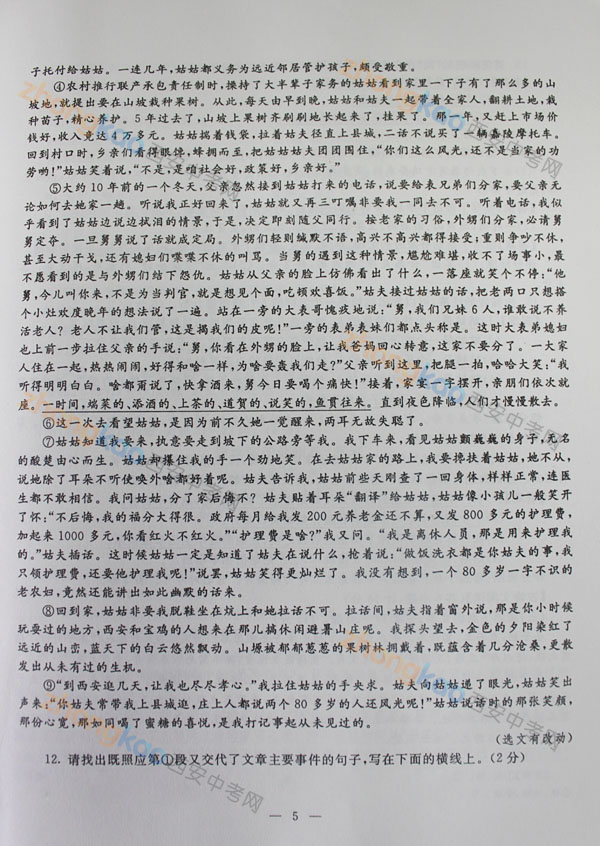 子托付给姑姑。一连几年,姑姑都义务为远近邻居管护孩子,颇受敬重。
④农村推行联产承包责任制时,操持了大半辈子家务的姑姑看到家里一下子有了那么多的山
坡地,就提出要在山坡栽种果树。从此,每天由早到晚,姑姑和姑夫一起带着全家人,翻耕土地,栽
种苗子,精心养护。5 年过去了,山坡上果树齐刷刷地长起来了,挂果了。那一年,又赶上市场价
钱好,收入竟达 4 万多元。姑姑揣着钱袋,拉着姑夫径直上县城,二话不说买了一辆嘉陵摩托车。
回到村口时,乡亲们看得眼馋,蜂拥而至,把姑姑姑夫团团围住,“你们这么风光,还不是当家的功
劳哟!”姑姑笑着说,“不是,是咱社会好,政策好,乡亲好。”
⑤大约 10 年前的一个冬天,父亲忽然接到姑姑打来的电话,说要给表兄弟们分家,要父亲无
论如何去她家一趟。听说我正好回来了,姑姑就又再三叮嘱非要我一同去不可。听着电话,我似
乎看到了姑姑边说边拭泪的情景,于是,决定即刻随父同行。按老家的习俗,外甥们分家,必请舅
舅定夺。一旦舅舅说了话就成定局。外甥们轻则缄默不语,高兴不高兴都得接受;重则争吵不休,
甚至大动干戈,还有媳妇们喋喋不休的叫骂。当舅的遇到这种情景,尴尬难堪,收不了场事小,最
不愿看到的是与外甥们结下怨仇。姑姑从父亲的脸上仿佛看出了什么,一落座就笑个不停:“他
舅,今儿叫你来,不是为当判官,就是想见个面,吃顿欢喜饭。”姑夫接过姑姑的话,把老两口只想搭
个小灶欢度晚年的想法说了一遍。站在一旁的大表哥愧疚地说:“舅,我们兄妹 6 人,谁敢说不养
活老人?老人不让我们管,这是揭我们的皮呢!”一旁的表弟表妹们都点头称是。这时大表弟媳妇
也上前一步拉住父亲的手说:“舅,你看在外甥的脸上,让我爸妈回心转意,这家不要分了。一大家
人住在一起,热热闹闹,好得和啥一样,为啥要轰我们走?”父亲听到这里,把腿一拍,哈哈大笑:“我
听得明明白白。啥都甭说了,快拿酒来,舅今日要喝个痛快!”接着,家宴一字摆开,亲朋们依次就
座。一时间,端菜的、添酒的、上茶的、道贺的、说笑的,鱼贯往来。直到夜色降临,人们才慢慢散去。
⑥这一次去看望姑姑,是因为前不久她一觉醒来,两耳无故失聪了。
⑦姑姑知道我要来,执意要走到坡下的公路旁等我。我下车来,看见姑姑颤巍巍的身子,无名
的酸楚由心而生。姑姑却攥住我的手一个劲地笑。在去姑姑家的路上,我要搀扶着姑姑,她不从,
说她除了耳朵不听使唤外啥都好着呢。姑夫告诉我,姑姑前些天刚查了一回身体,样样正常,连医
生都不敢相信。我问姑姑,分了家后悔不?姑夫贴着耳朵“翻译”给姑姑,姑姑像小孩儿一般笑开
了怀:“不后悔,我的福分大得很。政府每月给我发 200 元养老金还不算,又发 800 多元的护理费,
加起来 1000 多元,你看红火不红火。”“护理费是啥?”我又问。“我是离休人员,那是用来护理我
的。”姑夫插话。这时候姑姑一定是知道了姑夫在说什么,抢着说:“做饭洗衣都是你姑夫的事,我
只领护理费,还要他护理我呢!”说罢,姑姑笑得更灿烂了。我没有想到,一个 80 多岁一字不识的
老农妇,竟然还能讲出如此幽默的话来。
⑧回到家,姑姑非要我脱鞋坐在炕上和她拉话不可。拉话间,姑夫指着窗外说,那是你小时候
玩耍过的地方,西安和宝鸡的人想来在那儿搞休闲避暑山庄呢。我探头望去,金色的夕阳染红了
远近的山峦,蓝天下的白云悠然飘动。山塬被郁郁葱葱的果树林拥戴着,既蕴含着几分沧桑,更散
发出从未有过的生机。
⑨“到西安逛几天,让我也尽尽孝心。”我拉住姑姑的手央求。姑夫向姑姑递了眼光,姑姑笑出
声来:“你姑夫常带我上县城逛,庄上人都说两个 80 多岁的人还风光呢!”姑姑说话时的那张笑颜,
那份心宽,那如同喝了蜜糖的喜悦,是我打记事起从未见过的。
(选文有改动)
12. 请找出既照应第①段又交代了文章主要事件的句子,写在下面的横线上。(2 分)
— 5 —
zhongkao西安中考网
zhongkao西安中考网
zhongkao西安中考网